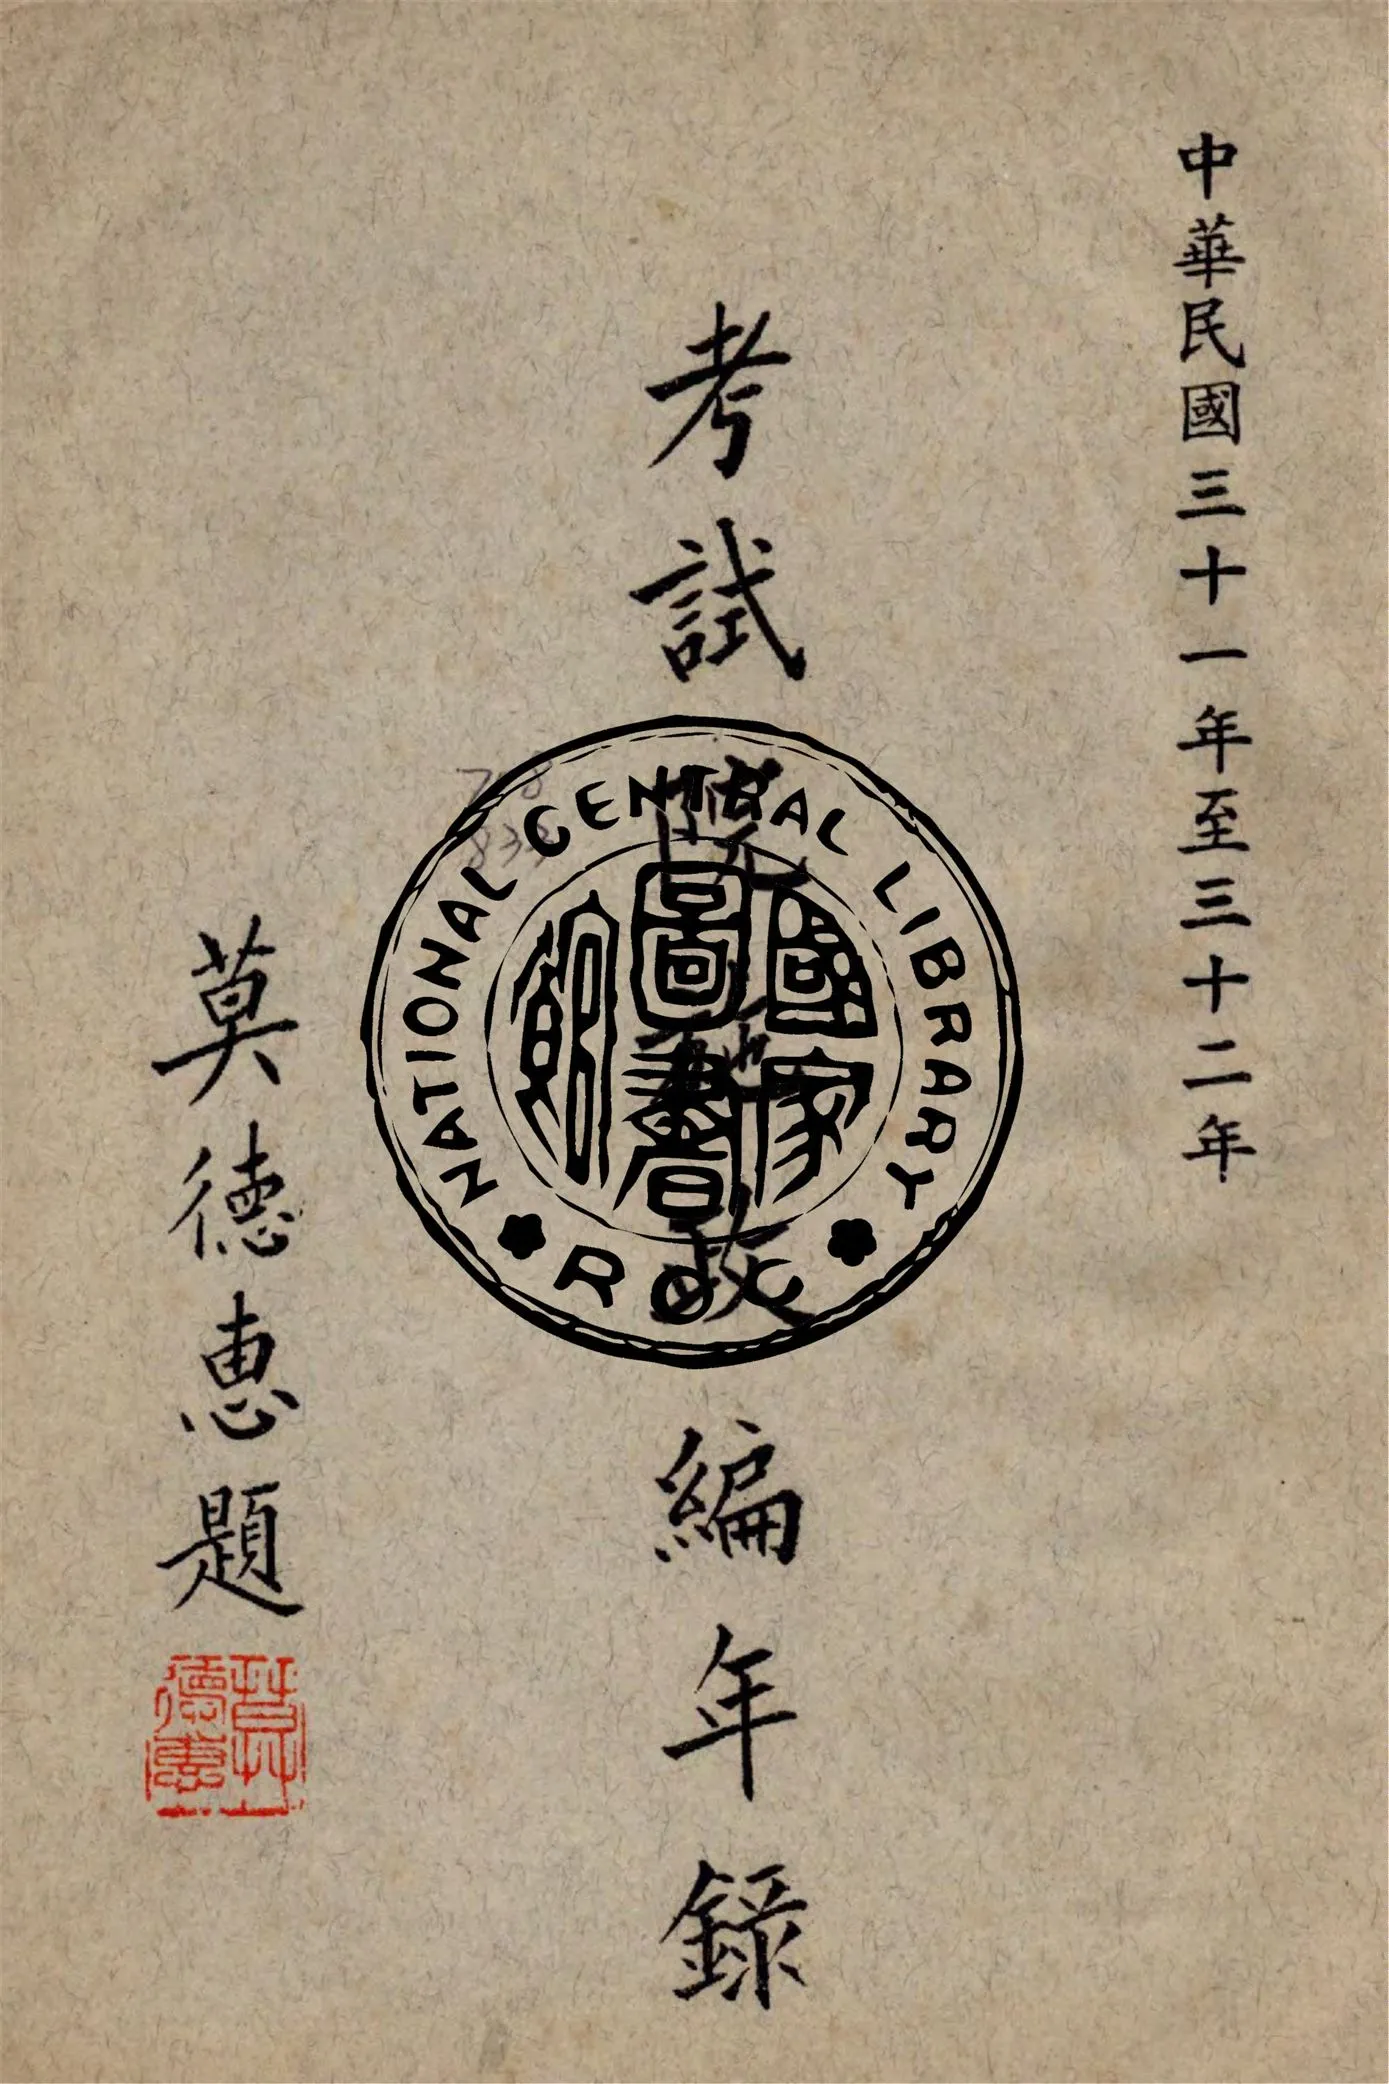 中華民國三十一年至三十二年
考試院施政編年錄
莫德惠題
莫德惠
NATIONAL CENTRAL LIBRARY
國家圖書館
R.O.C